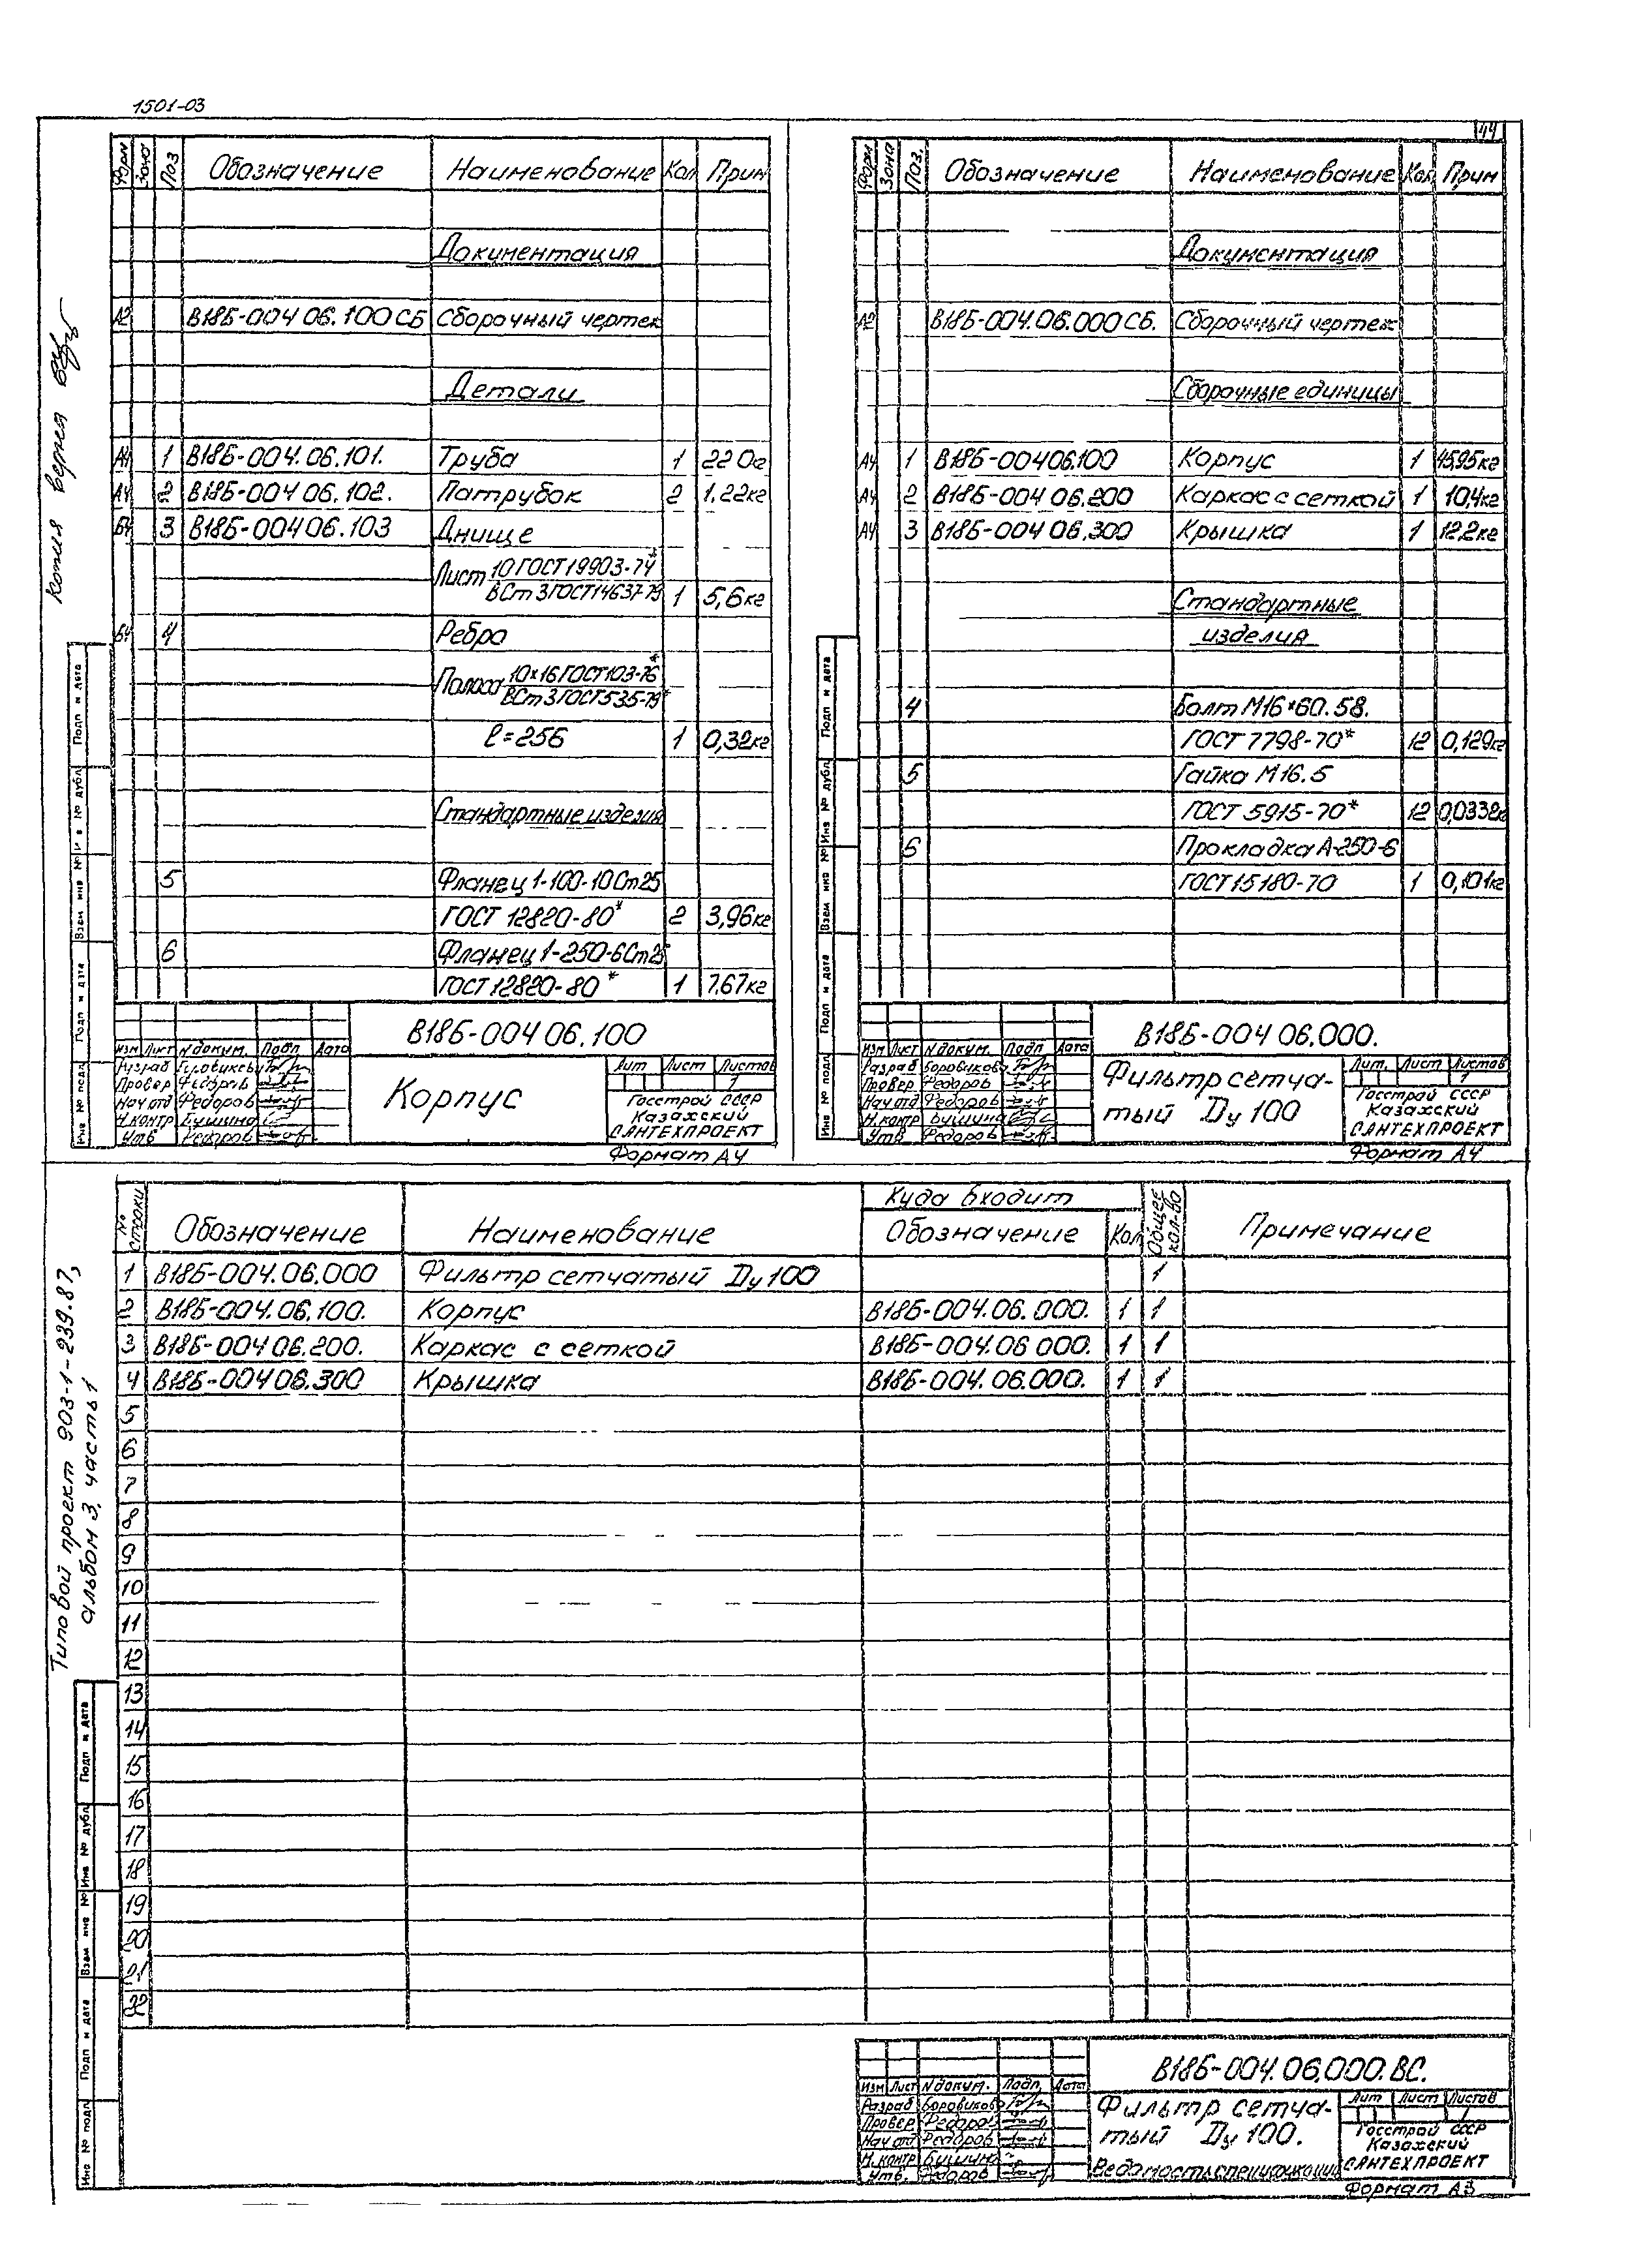 1501-03
44
Форм Зона Поз Обозначение Наименование Кол Прим
Документация
А2 В18Б-004 06.100СБ Сборочный чертеж
Детали
А4 1 В18Б-004.06.101. Труба 1 22 0кг
А4 2 В18Б-004 06.102. Патрубок 2 1.22кг
Б4 3 В18Б-004 06.103 Днище
Лист 10 ГОСТ 19903-74*
ВСт 3 ГОСТ 14637-79 1 5,6кг
Б4 4 Ребро
Полоса 10×16 ГОСТ 103-76*
ВСт 3 ГОСТ 535-79*
ℓ=256 1 0,32кг
Стандартные изделия
5 Фланец 1-100-10 Ст25
ГОСТ 12820-80* 2 3,96кг
6 Фланец 1-250-6 Ст25
ГОСТ 12820-80* 1 7.67кг
В18Б-004 06.100
Изм Лист N докум. Подп Дата
Разраб
Провер Федоров
Нач отд Федоров
Н.контр Бушина
Утв Федоров
Корпус
Лит Лист Листов
1
Госстрой СССР
Казахский
САНТЕХПРОЕКТ
Формат А4
Форм Зона Поз. Обозначение Наименование Кол Прим
Документация
А2 В18Б-004.06.000СБ. Сборочный чертеж
Сборочные единицы
А4 1 В18Б-00406.100 Корпус 1 45.95кг
А4 2 В18Б-004 06.200 Каркас с сеткой 1 10,4кг
А4 3 В18Б-004 06.300 Крышка 1 12.2кг
Стандартные
изделия
4 Болт М16*60.58.
ГОСТ 7798-70* 12 0,129кг
5 Гайка М16.5
ГОСТ 5915-70* 12 0,0332кг
6 Прокладка А-250-6
ГОСТ 15180-70 1 0,101кг
В18Б-004 06.000.
Изм Лист N докум. Подп Дата
Разраб Боровикова
Провер Федоров
Нач отд Федоров
Н.контр Бушина
Утв Федоров
Фильтр сетча-
тый Ду 100
Лит. Лист Листов
1
Госстрой СССР
Казахский
САНТЕХПРОЕКТ
Формат А4
Копия верна
Подп и дата
Инв № дубл
Взам инв №
Подп и дата
Инв № подл
Подп и дата
Инв № дубл
Взам инв №
Подп и дата
Инв № подл
№ строки Обозначение Наименование Куда входит Общее кол-во Примечание
Обозначение Кол
1 В18Б-004.06.000 Фильтр сетчатый Ду 100 1
2 В18Б-004.06.100. Корпус В18Б-004.06.000. 1 1
3 В18Б-004 06.200. Каркас с сеткой В18Б-004.06 000. 1 1
4 В18Б-00406.300 Крышка В18Б-004.06.000. 1 1
5
6
7
8
9
10
11
12
13
14
15
16
17
18
19
20
21
22
Типовой проект 903-1-239.87,
альбом 3, часть 1
Подп и дата
Инв № дубл
Взам инв №
Подп и дата
Инв № подл
В18Б-004.06.000.ВС.
Изм Лист N докум. Подп. Дата
Разраб Боровикова
Провер Федоров
Нач отд Федоров
Н.контр Бушина
Утв. Федоров
Фильтр сетча-
тый Ду 100.
Ведомость спецификации
Лит Лист Листов
1
Госстрой СССР
Казахский
САНТЕХПРОЕКТ
Формат А3